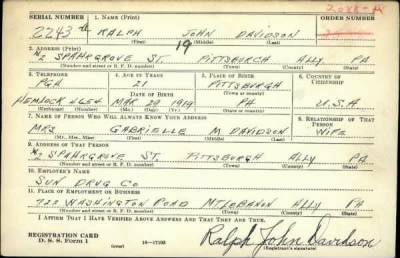 SERIAL NUMBER 1. NAME (Print) ORDER NUMBER
2243 RALPH JOHN DAVIDSON
(First) (Middle) (Last)
19
2. ADDRESS (Print)
SPAHRGROVE ST. PITTSBURGH ALLY PA
(Number and street or R. F. D. number) (Town) (County) (State)
3. TELEPHONE 4. AGE IN YEARS 5. PLACE OF BIRTH 6. COUNTRY OF CITIZENSHIP
PGH 21 PITTSBURGH
DATE OF BIRTH (Town or county)
HEMLOCK 4654 MAR 29 1919 PA U.S.A.
(Exchange) (No.) (Mo.) (Day) (Yr.) (State or country)
7. NAME OF PERSON WHO WILL ALWAYS KNOW YOUR ADDRESS 8. RELATIONSHIP OF THAT PERSON
MRS GABRIELLE M DAVIDSON WIFE
(Mr., Mrs., Miss) (First) (Middle) (Last)
9. ADDRESS OF THAT PERSON
SPAHRGROVE ST. PITTSBURGH ALLY PA
(Number and street or R. F. D. number) (Town) (County) (State)
10. EMPLOYER'S NAME
SUN DRUG CO
11. PLACE OF EMPLOYMENT OR BUSINESS
722 WASHINGTON ROAD MT LEBANON ALLY PA
(Number and street or R. F. D. number) (Town) (County) (State)
I AFFIRM THAT I HAVE VERIFIED ABOVE ANSWERS AND THAT THEY ARE TRUE.
REGISTRATION CARD
D. S. S. Form 1 (over) 16—17105 Ralph John Davidson
(Registrant's signature)